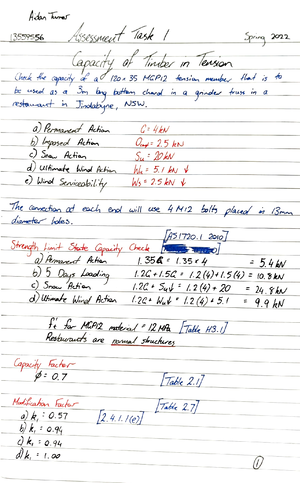 Aidan Turner
13559556 Assessment Task 1 Spring 2022
Capacity of Timber in Tension
Check the capacity of a 120x35 MGP12 tension member that is to
be used as a 3m long bottom chord in a girder truss in a
restaurant in Jindabyne, NSW.
a) Permanent Action G = 4 kN
b) Imposed Action = 2.5 kN
c) Snow Action Su = 20 kN
d) Ultimate Wind Action Wu = 5.1 kN ↓
e) Wind Serviceability Ws = 2.5 kN ↓
The connection at each end will use 4 M12 bolts placed in 13mm
diameter holes.
[AS1720.1 2010]
Strength Limit State Capacity Check
a) Permanent Action 1.35G = 1.35 x 4 = 5.4 kN
b) 5 Days Loading 1.2G + 1.5Q = 1.2(4) + 1.5(4) = 10.8 kN
c) Snow Action 1.2G + Su↓ = 1.2(4) + 20 = 24.8 kN
d) Ultimate Wind Action 1.2G + Wu↓ = 1.2(4) + 5.1 = 9.9 kN
f't for MGP12 material = 12 MPa [Table H3.1]
Restaurants are normal structures
Capacity Factor
Ø = 0.7 [Table 2.1]
Modification Factor [Table 2.7]
a) k₁ = 0.57 [2.4.1.1(e)]
b) k₁ = 0.94
c) k₁ = 0.94
d) k₁ = 1.00
1